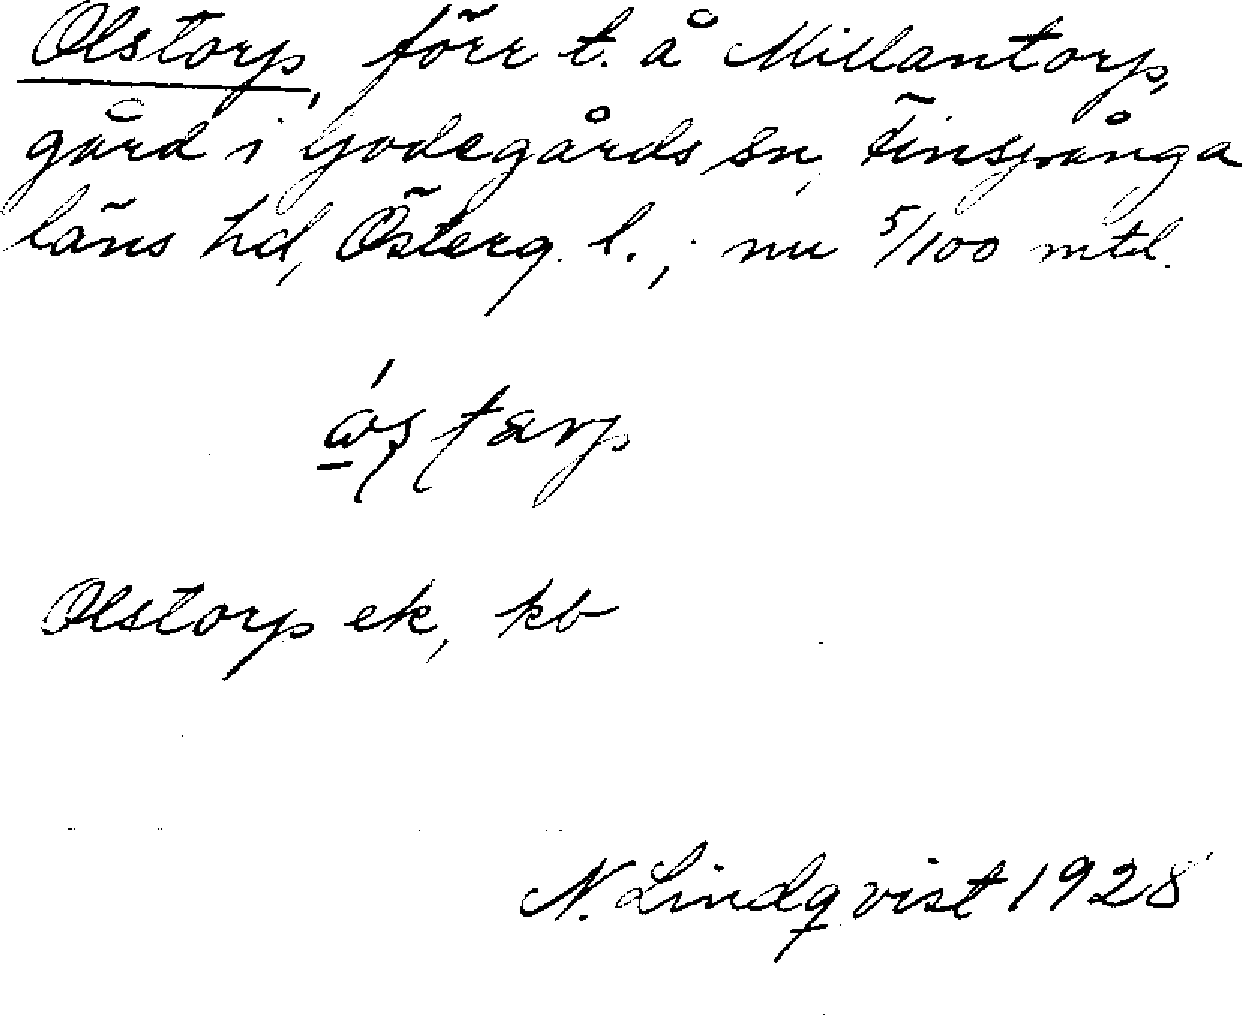 Olstorp, förr t. å Millantorp,
gård i Godegårds sn, Finspånga
läns hd, Österg. l.; nu 5/100 mtl.
Olstorp ek, kb
N. Lindqvist 1928